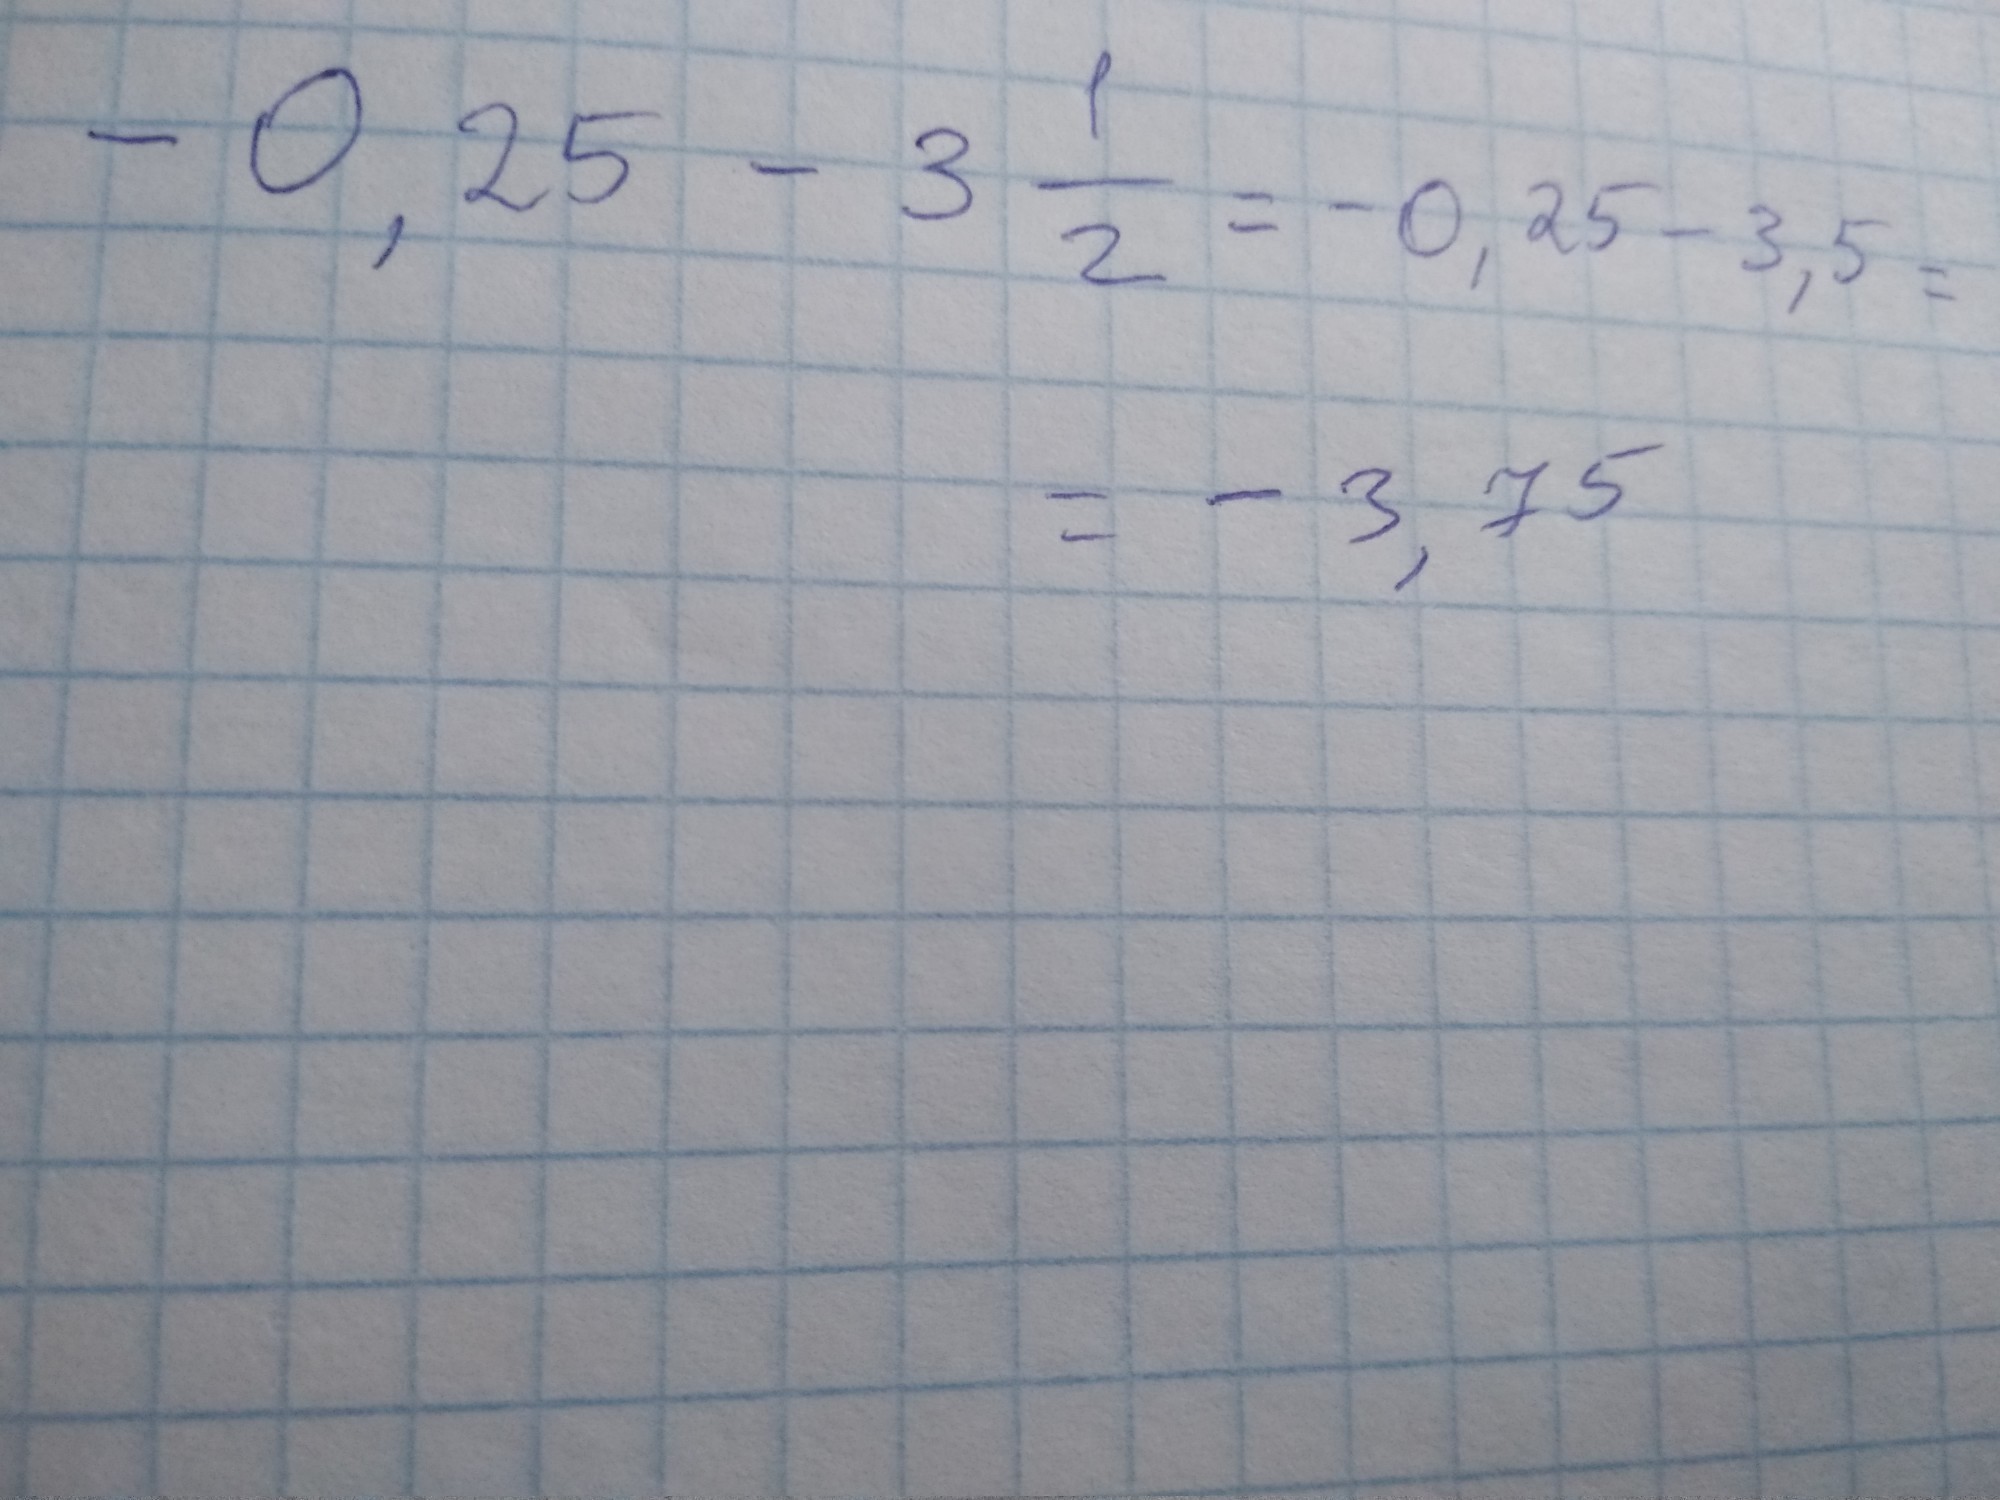 - 0,25 - 3 1/2 = - 0,25 - 3,5 =
= - 3,75